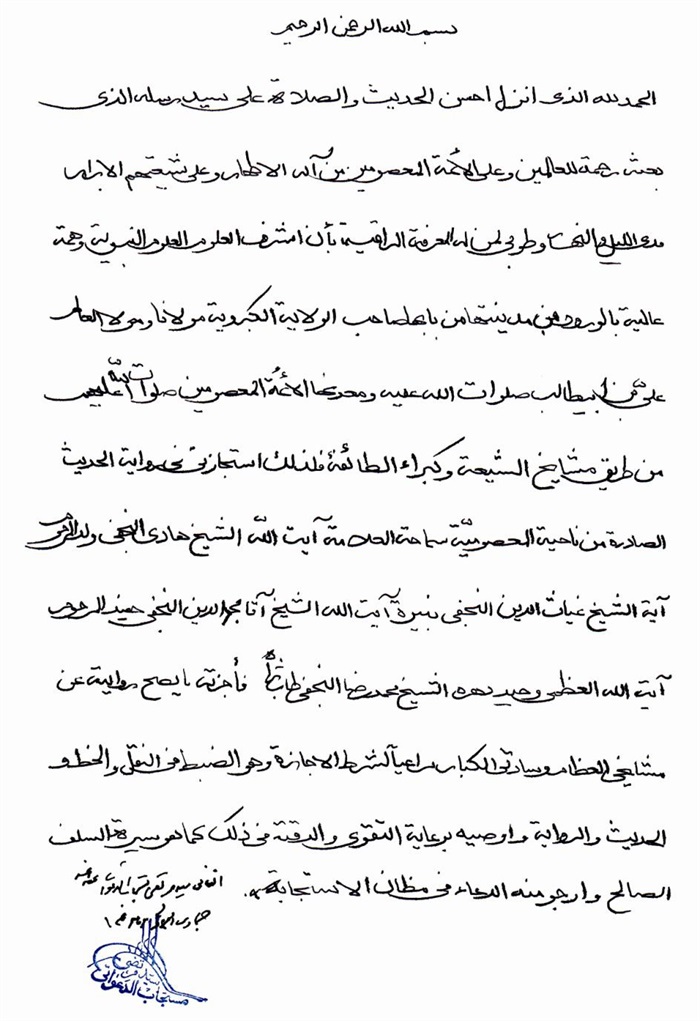 بسم الله الرحمن الرحيم
الحمد لله الذى انزل احسن الحديث والصلاة على سيد رسله الذى
بعثه رحمة للعالمين وعلى الائمة المعصومين من آله الاطهار وعلى شيعتهم الابرار
مدى الليل والنهار وطوبى لمن له المعرفة الراقية بأن اشرف العلوم العلوم النبوية وهمة
عالية بالورود فى مدينتها من بابها صاحب الولاية الكبروية مولانا ومولا العالم
على بن ابيطالب صلوات الله عليه ومعدنها الائمة المعصومين صلوات الله عليهم
من طريق مشايخ الشيعة وكبراء الطائفة فلذلك استجازنى فى رواية الحديث
الصادرة من ناحية المعصومية سماحة العلامة آيت الله الشيخ هادى النجفى ولد المرحوم
آية الشيخ غياث الدين النجفى نبيرة آيت الله الشيخ آقا مجد الدين النجفى حفيد المرحوم
آيت الله العظمى وحيد دهره الشيخ محمد رضا النجفى طاب ثراه فأجزته ما يصح روايته عن
مشايخى العظام وساداتى الكبار مراعياً لشرط الاجازة وهو الضبط فى النقل والخط و
الحديث والرواية واوصيه برعاية التقوى والدقة فى ذلك كما هو سيرة السلف
الصالح وارجو منه الدعاء فى مظان الاستجابة
سيد مرتضى
مستجاب الدعواتى